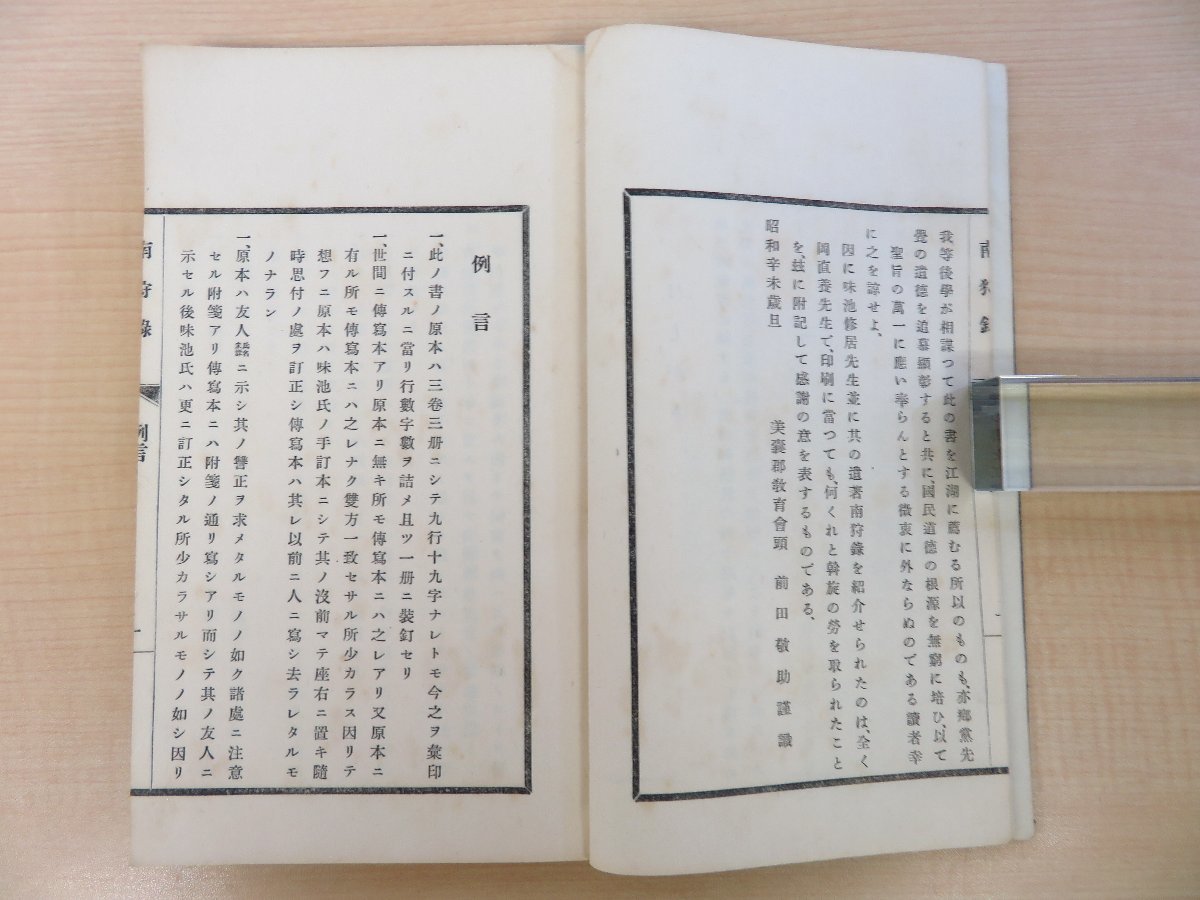 我等後學が相謀つて此の書を江湖に薦むる所以のものも、亦鄕黨先
覺の遺德を追慕顯彰すると共に、國民道德の根源を無窮に培ひ、以て
聖旨の萬一に應い奉らんとする微衷に外ならぬのである讀者幸
に之を諒せよ、
因に味池修居先生並に其の遺著南狩錄を紹介せられたのは、全く
岡直養先生で、印刷に當つても、何くれと斡旋の勞を取られたこと
を、玆に附記して感謝の意を表するものである、
昭和辛未歲旦
美嚢郡敎育會頭 前田敬助謹識
南狩錄
一
例言
一、此ノ書ノ原本ハ三卷三册ニシテ九行十九字ナレトモ今之ヲ彙印
ニ付スルニ當リ行數字數ヲ詰メ且ツ一册ニ裝釘セリ
一、世間ニ傳寫本アリ原本ニ無キ所モ傳寫本ニハ之レアリ又原本ニ
有ル所モ傳寫本ニハ之レナク雙方一致セサル所少カラス因リテ
想フニ原本ハ味池氏ノ手訂本ニシテ其ノ沒前マテ座右ニ置キ隨
時思付ノ處ヲ訂正シ傳寫本ハ其レ以前ニ人ニ寫シ去ラレタルモ
ノナラン
一、原本ハ友人ニ示シ其ノ訾正ヲ求メタルモノノ如ク諸處ニ注意
セル附箋アリ傳寫本ニハ附箋ノ通リ寫シアリ而シテ其ノ友人ニ
示セル後味池氏ハ更ニ訂正シタル所少カラサルモノノ如シ因リ
南狩錄
例言
一